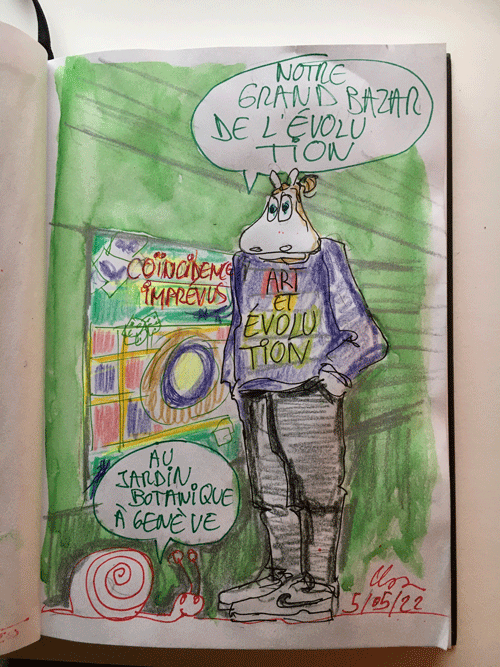 NOTRE
GRAND BAZAR
DE L'ÉVOLU
TION
COÏNCIDENCE
IMPRÉVUS
ART
ET
ÉVOLU
TION
AU
JARDIN
BOTANIQUE
À GENÈVE
5/05/22